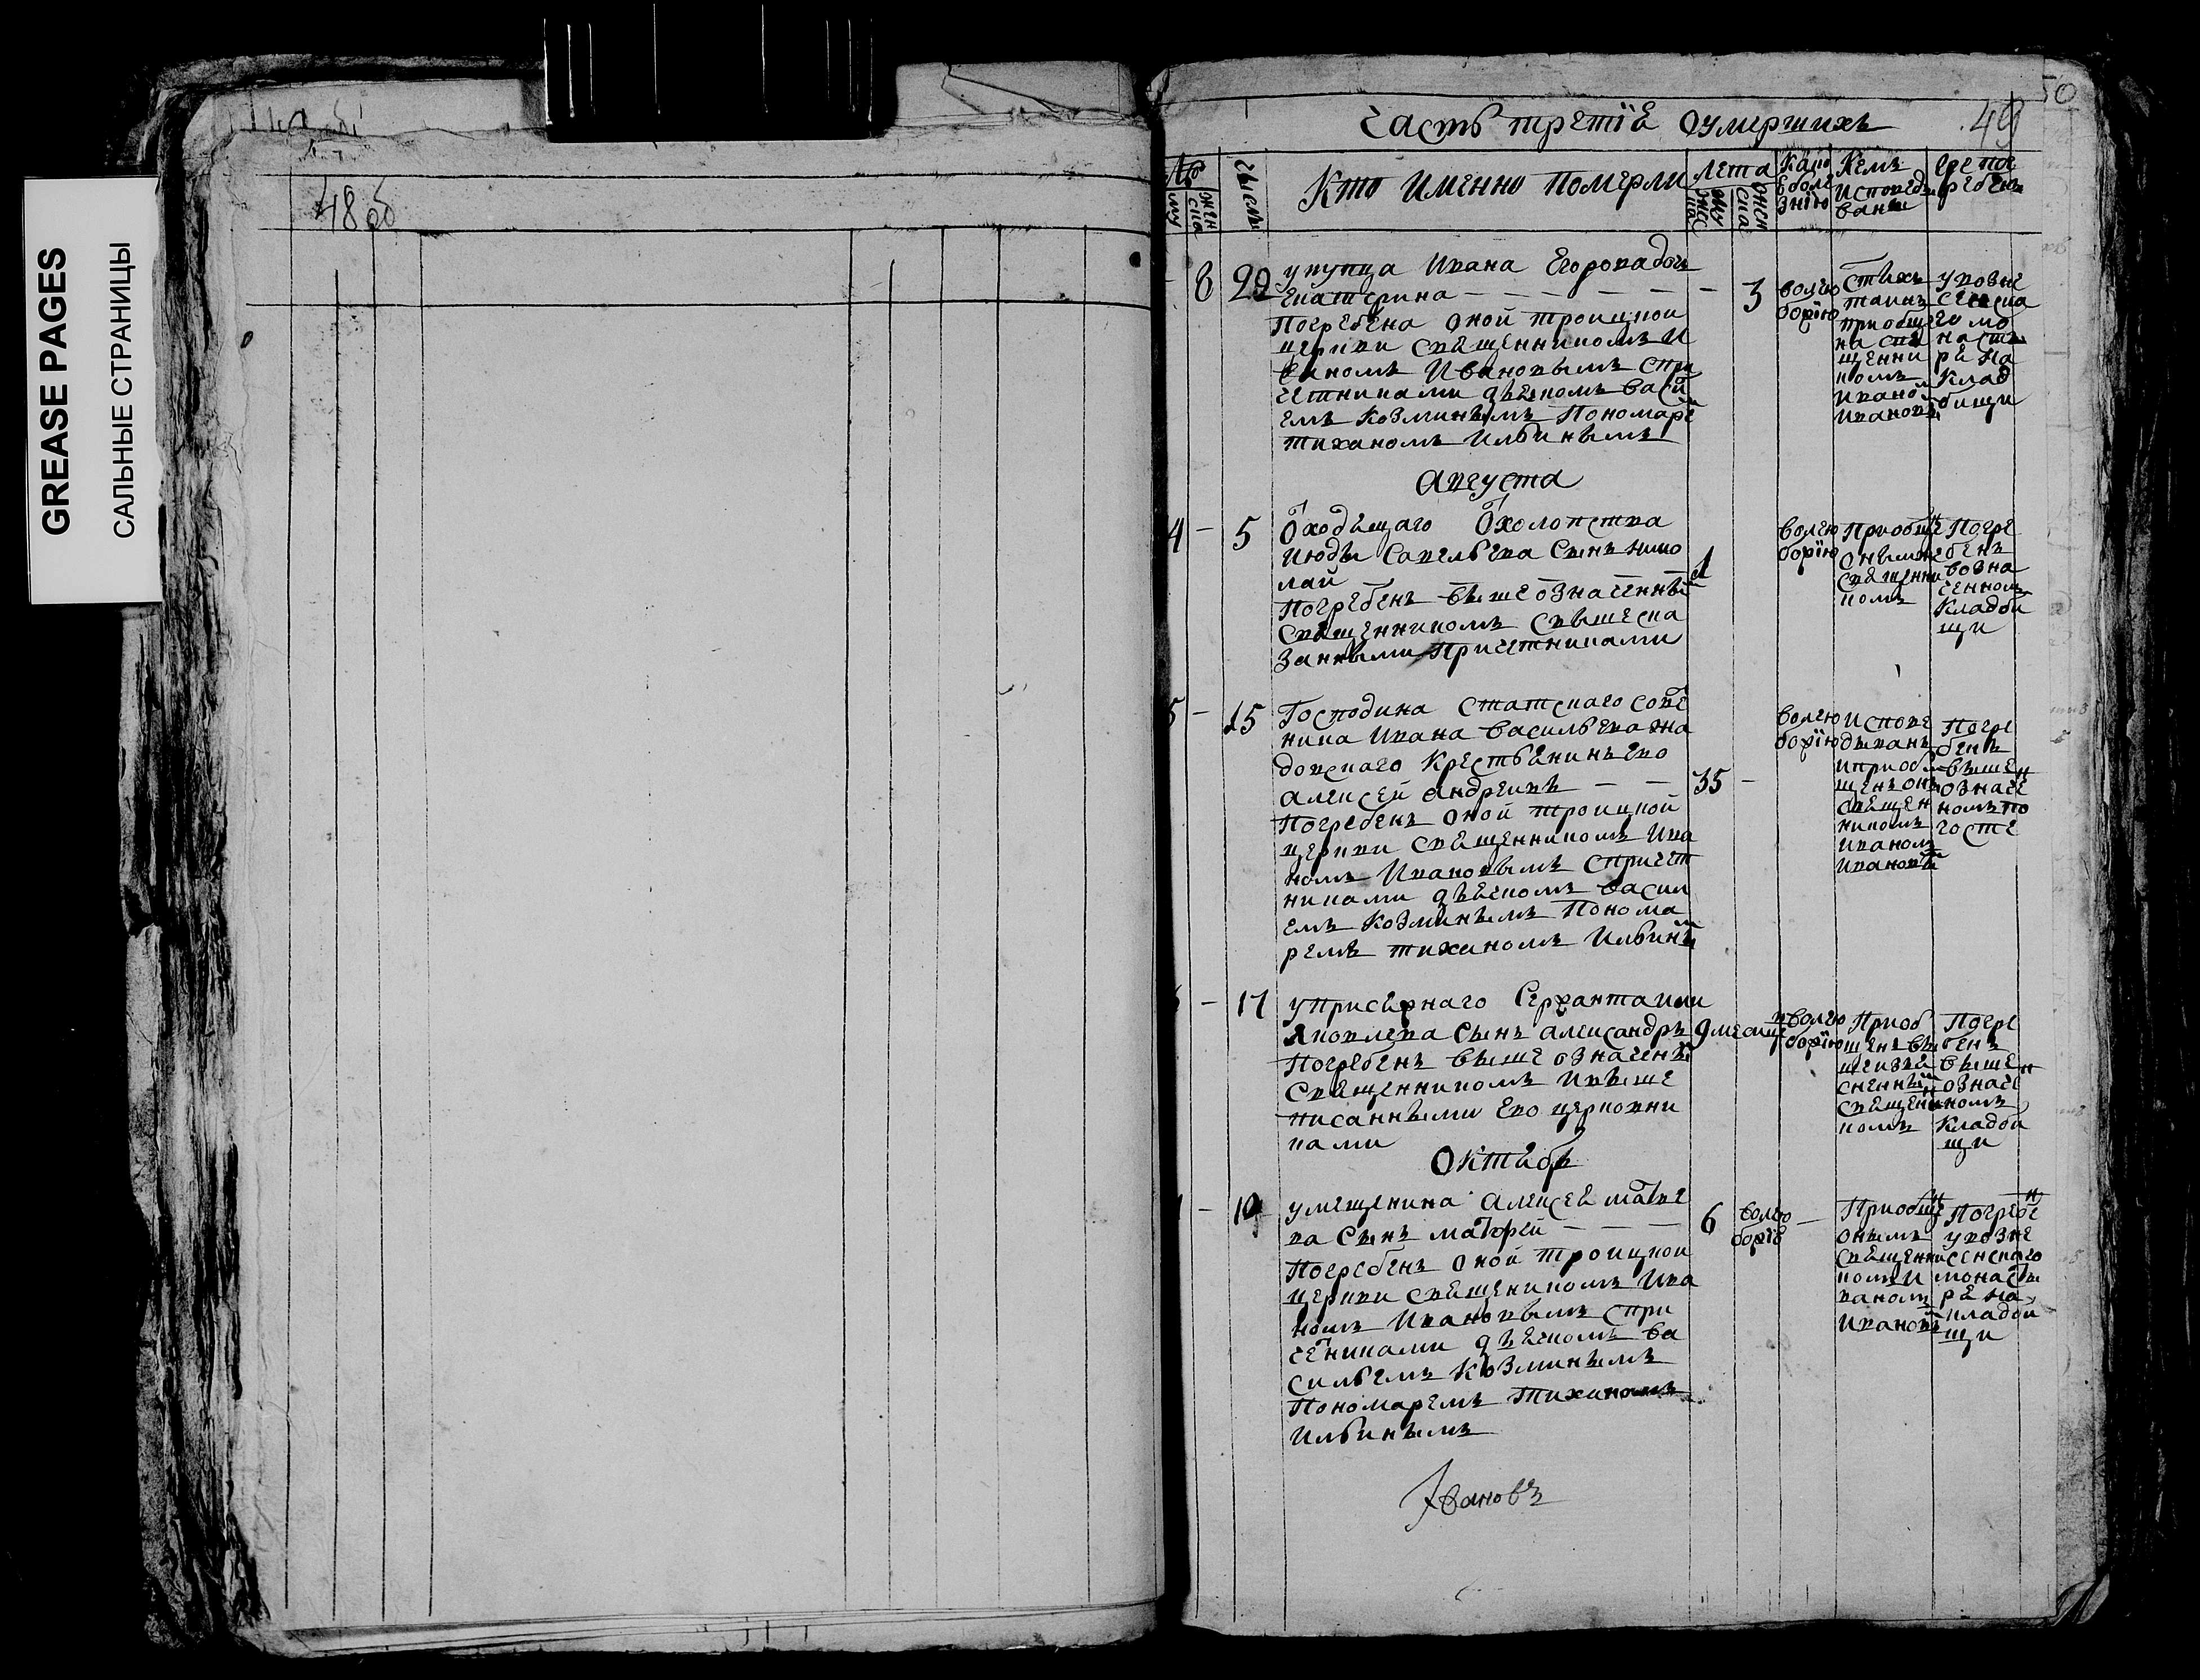 GREASE PAGES
САЛЬНЫЕ СТРАНИЦЫ
48 об
50
49
Часть третїя Оумершихъ
№
муж
женска
Числы
Кто именно померли
лета
мужеска
женска
Какою болезнїю
Кемъ исповеданы
где погребены
8
29
у купца Ивана Егорова дочь
Екатерина
3
Погребена оной троицкой
церкви священникомъ И
ваномъ Ивановымъ с при
четниками дьячкомъ васи
емъ Козминымъ Пономаре
тиханомъ Ильинымъ
вольею
ворїю
Стыхъ
таинъ
приобще
на свя
щенни
комъ
Ивано
Ивановы
у возне
сенска
го мо
насты
ря на
клад
бищи
Августа
4
5
Отходящаго От холопства
июды Савельева сынъ нико
лай
1
Погребенъ выше означенны
священникомъ с вышеска
занными Причетниками
Приобще
онымже
священни
комъ
Погре
бенъ
возна
ченном
кладби
щи
5
15
Господина статскаго сове
ника Ивана васильева жа
довскаго крестьянинъ его
алексей андреивъ
35
Погребенъ оной троицкой
церкви священникомъ Ива
номъ Ивановымъ с причет
никами дьячкомъ васил
емъ Козминымъ Понома
ремъ тиханомъ Ильины
испове
дыванъ
и приоб
щенъ оны
священ
никомъ
Иваном
Ивановы
Погре
бенъ
вышен
означе
номъ по
госте
17
у присяжнаго Сержанта
Яковлева сынъ александръ
9 месяц
Погребенъ выше означены
священникомъ и выше
писанными его церковни
ками
Приоб
щенъ вы
Погре
бенъ
выше
означе
номъ
кладби
щи
Октябр
10
у мещенина алексея матве
ва сынъ матфей
6
Погребенъ оной троицкой
церкви священикомъ Ива
номъ Ивановымъ с при
чениками дьячкомъ ва
сильемъ Козминымъ
Пономаремъ тиханомъ
Ильинымъ
Приобще
онымъ
священни
комъ И
ваномъ
Ивановы
Погребе
у возне
сенскаго
монасты
ря на
кладби
щи
Ивановъ